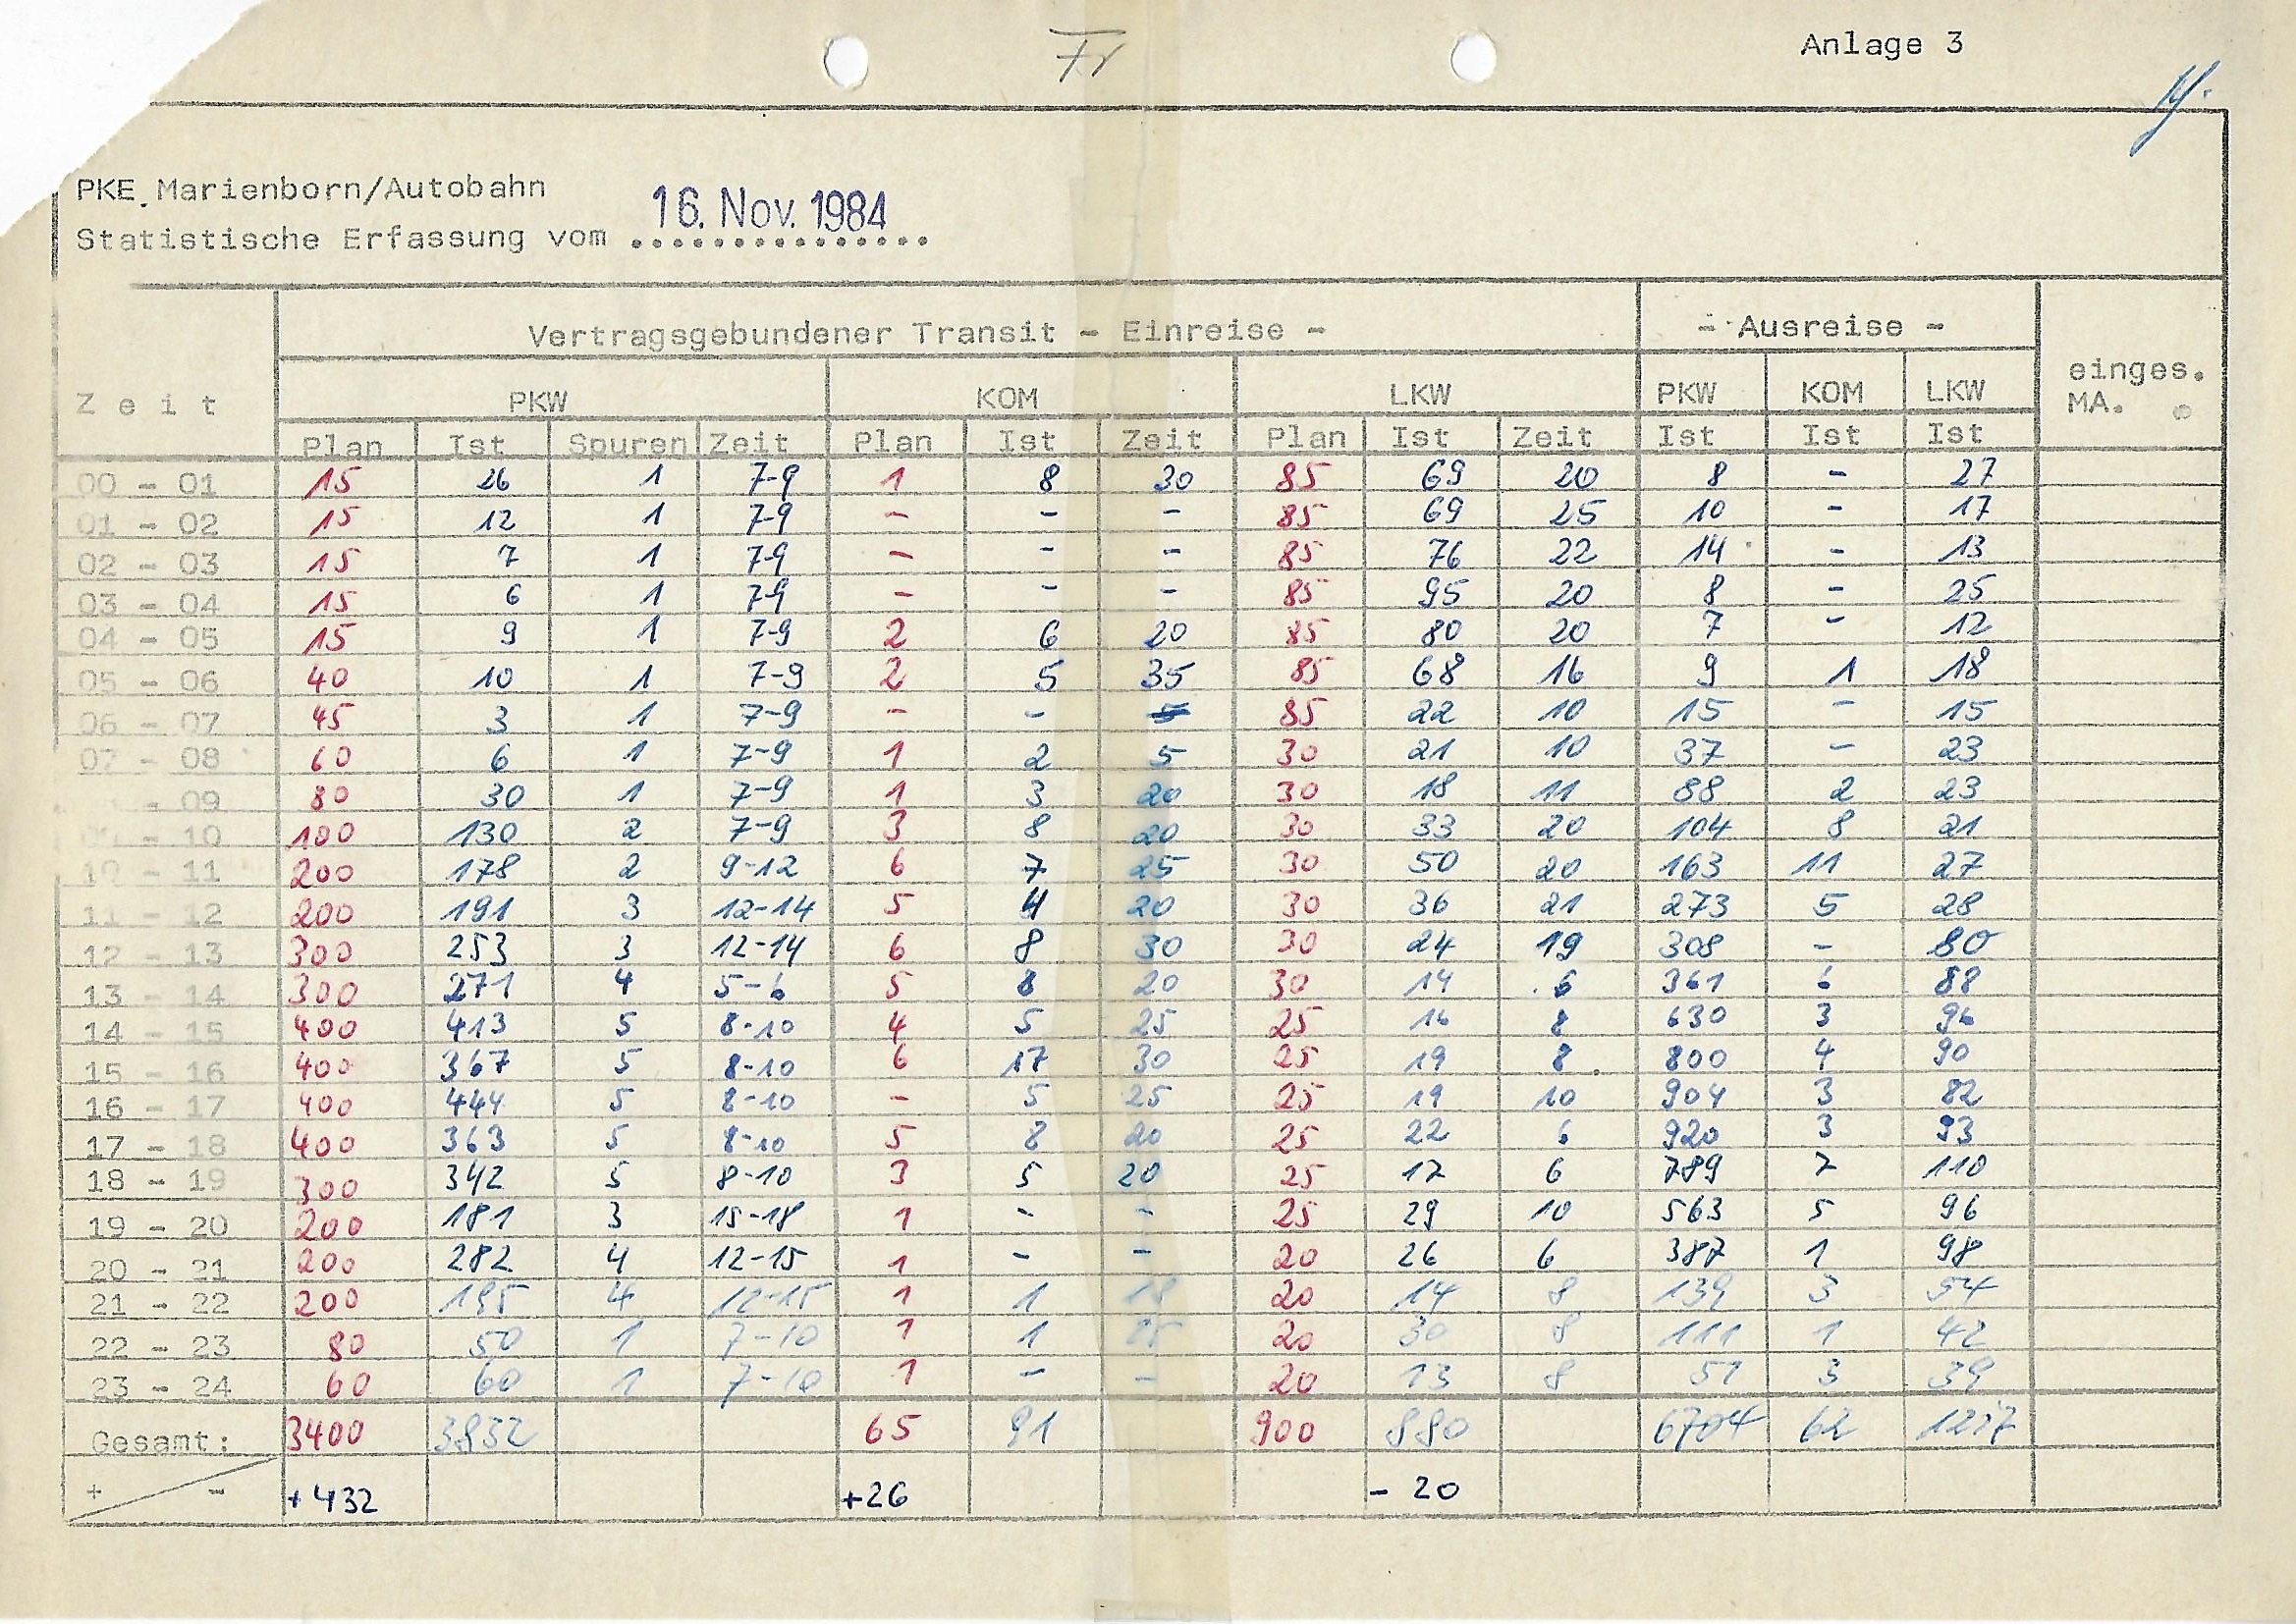 Fr
Anlage 3
PKE Marienborn/Autobahn
Statistische Erfassung vom 16. Nov. 1984
Vertragsgebundener Transit - Einreise - - Ausreise -
Zeit PKW KOM LKW PKW KOM LKW einges. MA.
Plan Ist Spuren Zeit Plan Ist Zeit Plan Ist Zeit Ist Ist Ist
00 - 01 15 26 1 7-9 1 8 30 85 69 20 8 - 27
01 - 02 15 12 1 7-9 - - - 85 69 25 10 - 17
02 - 03 15 7 1 7-9 - - - 85 76 22 14 - 13
03 - 04 15 6 1 7-9 - - - 85 95 20 8 - 25
04 - 05 15 9 1 7-9 2 6 20 85 80 20 7 - 12
05 - 06 40 10 1 7-9 2 5 35 85 68 16 9 1 18
06 - 07 45 3 1 7-9 - - 85 22 10 15 - 15
07 - 08 60 6 1 7-9 1 2 5 30 21 10 37 - 23
- 09 80 30 1 7-9 1 3 20 30 18 11 88 2 23
- 10 100 130 2 7-9 3 8 20 30 33 20 104 8 21
10 - 11 200 178 2 9-12 6 7 25 30 50 20 163 11 27
11 - 12 200 191 3 12-14 5 4 20 30 36 21 273 5 28
12 - 13 300 253 3 12-14 6 8 30 30 24 19 308 - 80
13 - 14 300 271 4 5-6 5 8 20 30 14 6 361 6 88
14 - 15 400 413 5 8-10 4 5 25 25 16 8 630 3 96
15 - 16 400 367 5 8-10 6 17 30 25 19 8 800 4 90
16 - 17 400 444 5 8-10 - 5 25 25 19 10 904 3 82
17 - 18 400 363 5 8-10 5 8 20 25 22 6 920 3 93
18 - 19 300 342 5 8-10 3 5 20 25 17 6 789 7 110
19 - 20 200 181 3 15-18 1 - - 25 29 10 563 5 96
20 - 21 200 282 4 12-15 1 - - 20 26 6 387 1 98
21 - 22 200 195 4 12-15 1 1 20 14 8 139 3 54
22 - 23 80 50 1 7-10 1 1 20 30 8 111 1 42
23 - 24 60 60 1 7-10 1 - - 20 13 8 51 3 39
Gesamt: 3400 3832 65 91 900 880 6704 62
+ - +432 +26 - 20